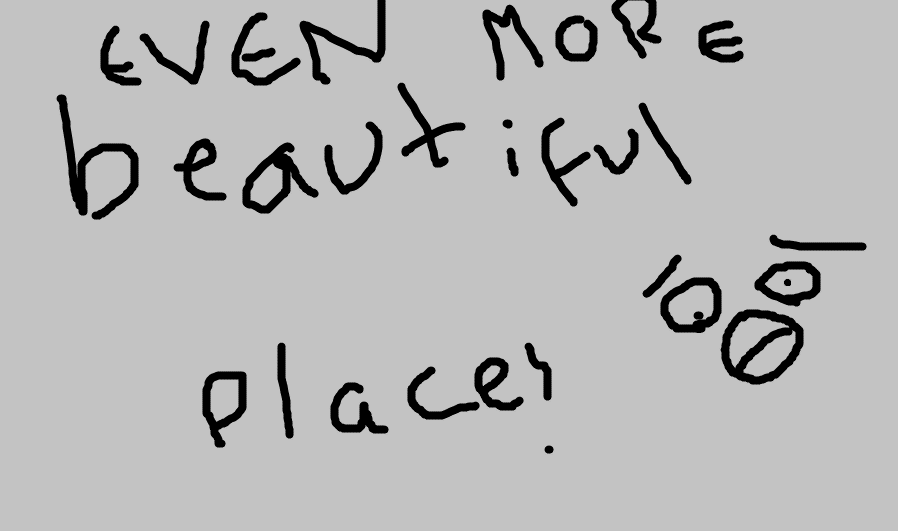 EVEN MORE
beautiful
place!